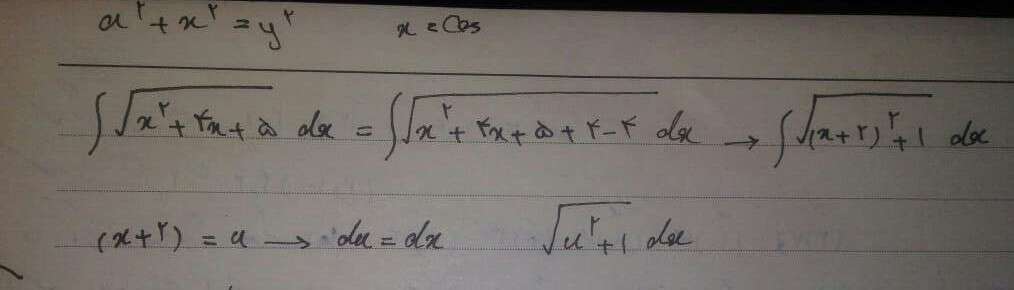 a^۲ + x^۲ = y^۲    x = Cos
∫√(x^۲ + ۴x + ۵) dx = ∫√(x^۲ + ۴x + ۵ + ۴ - ۴) dx → ∫√((x+۲)^۲ + ۱) dx
(x+۲) = u → du = dx    √(u^۲ + ۱) dx